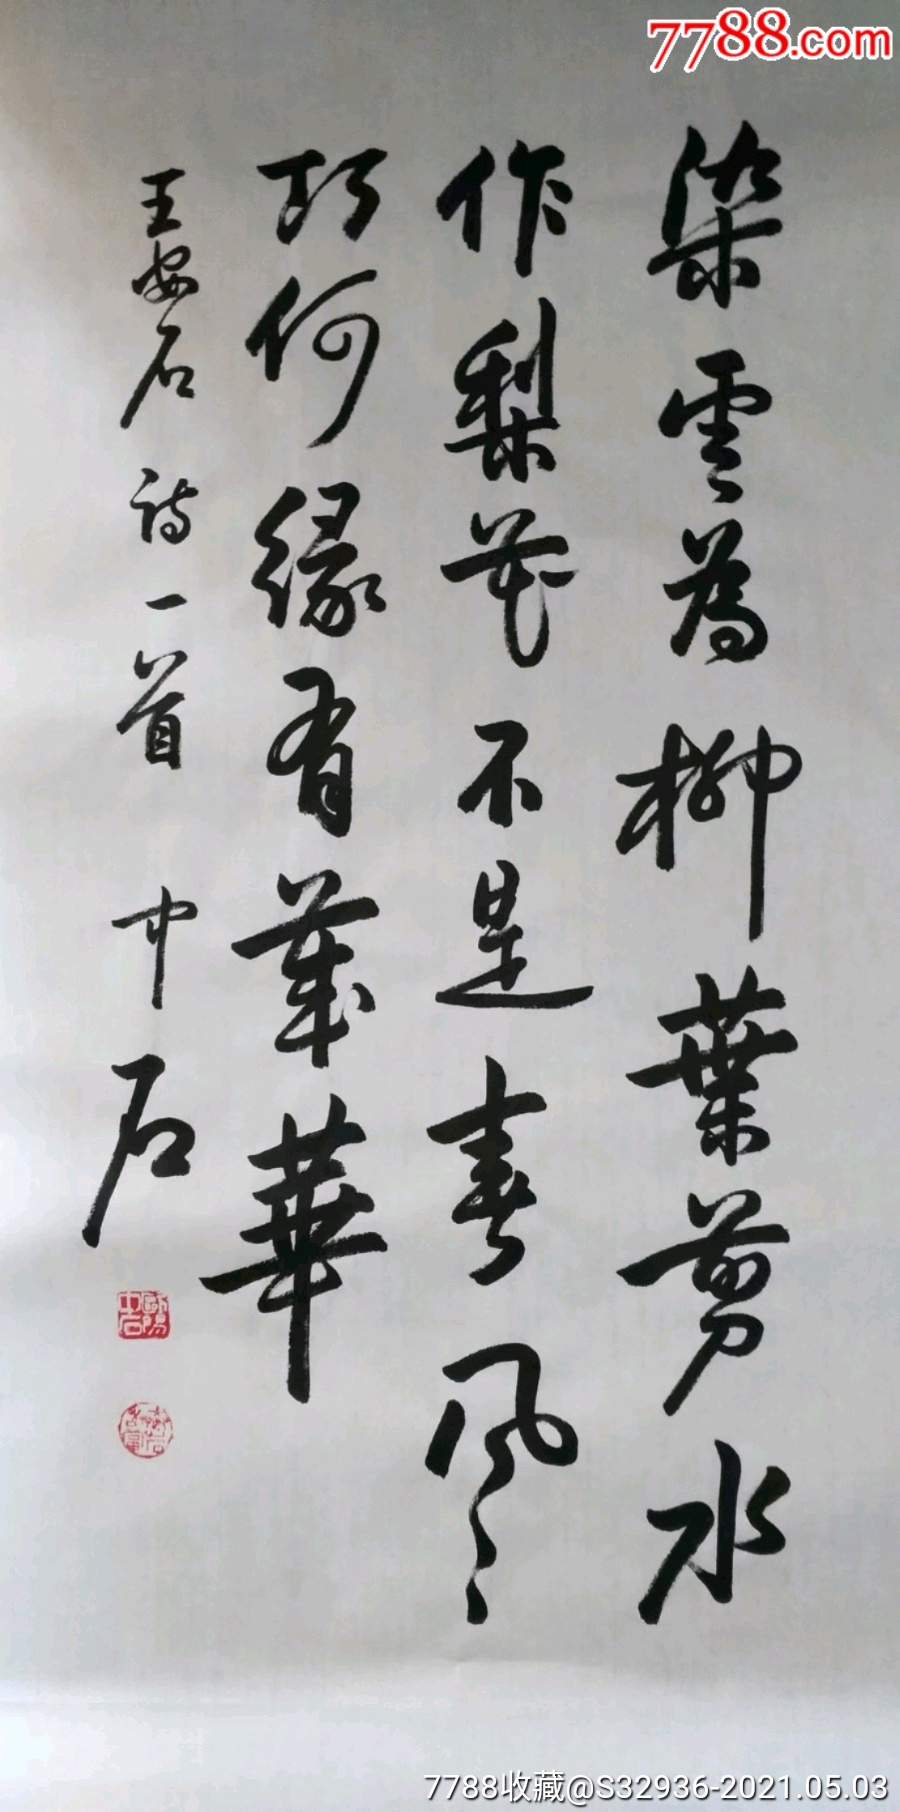 7788.com
染雲為柳葉剪水
作梨花不是春風
巧何緣有歲華
王安石詩一首 中石
歐陽中石
7788收藏@S32936-2021.05.03